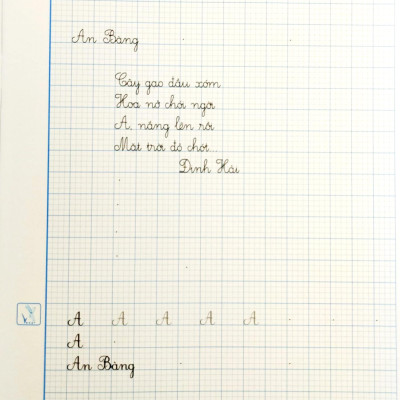 An Bàng
Cây gạo đầu xóm
Hoa nở chói ngời
A, nắng lên rồi
Mặt trời đỏ chót...
Định Hải
A A A A A
A
An Bàng